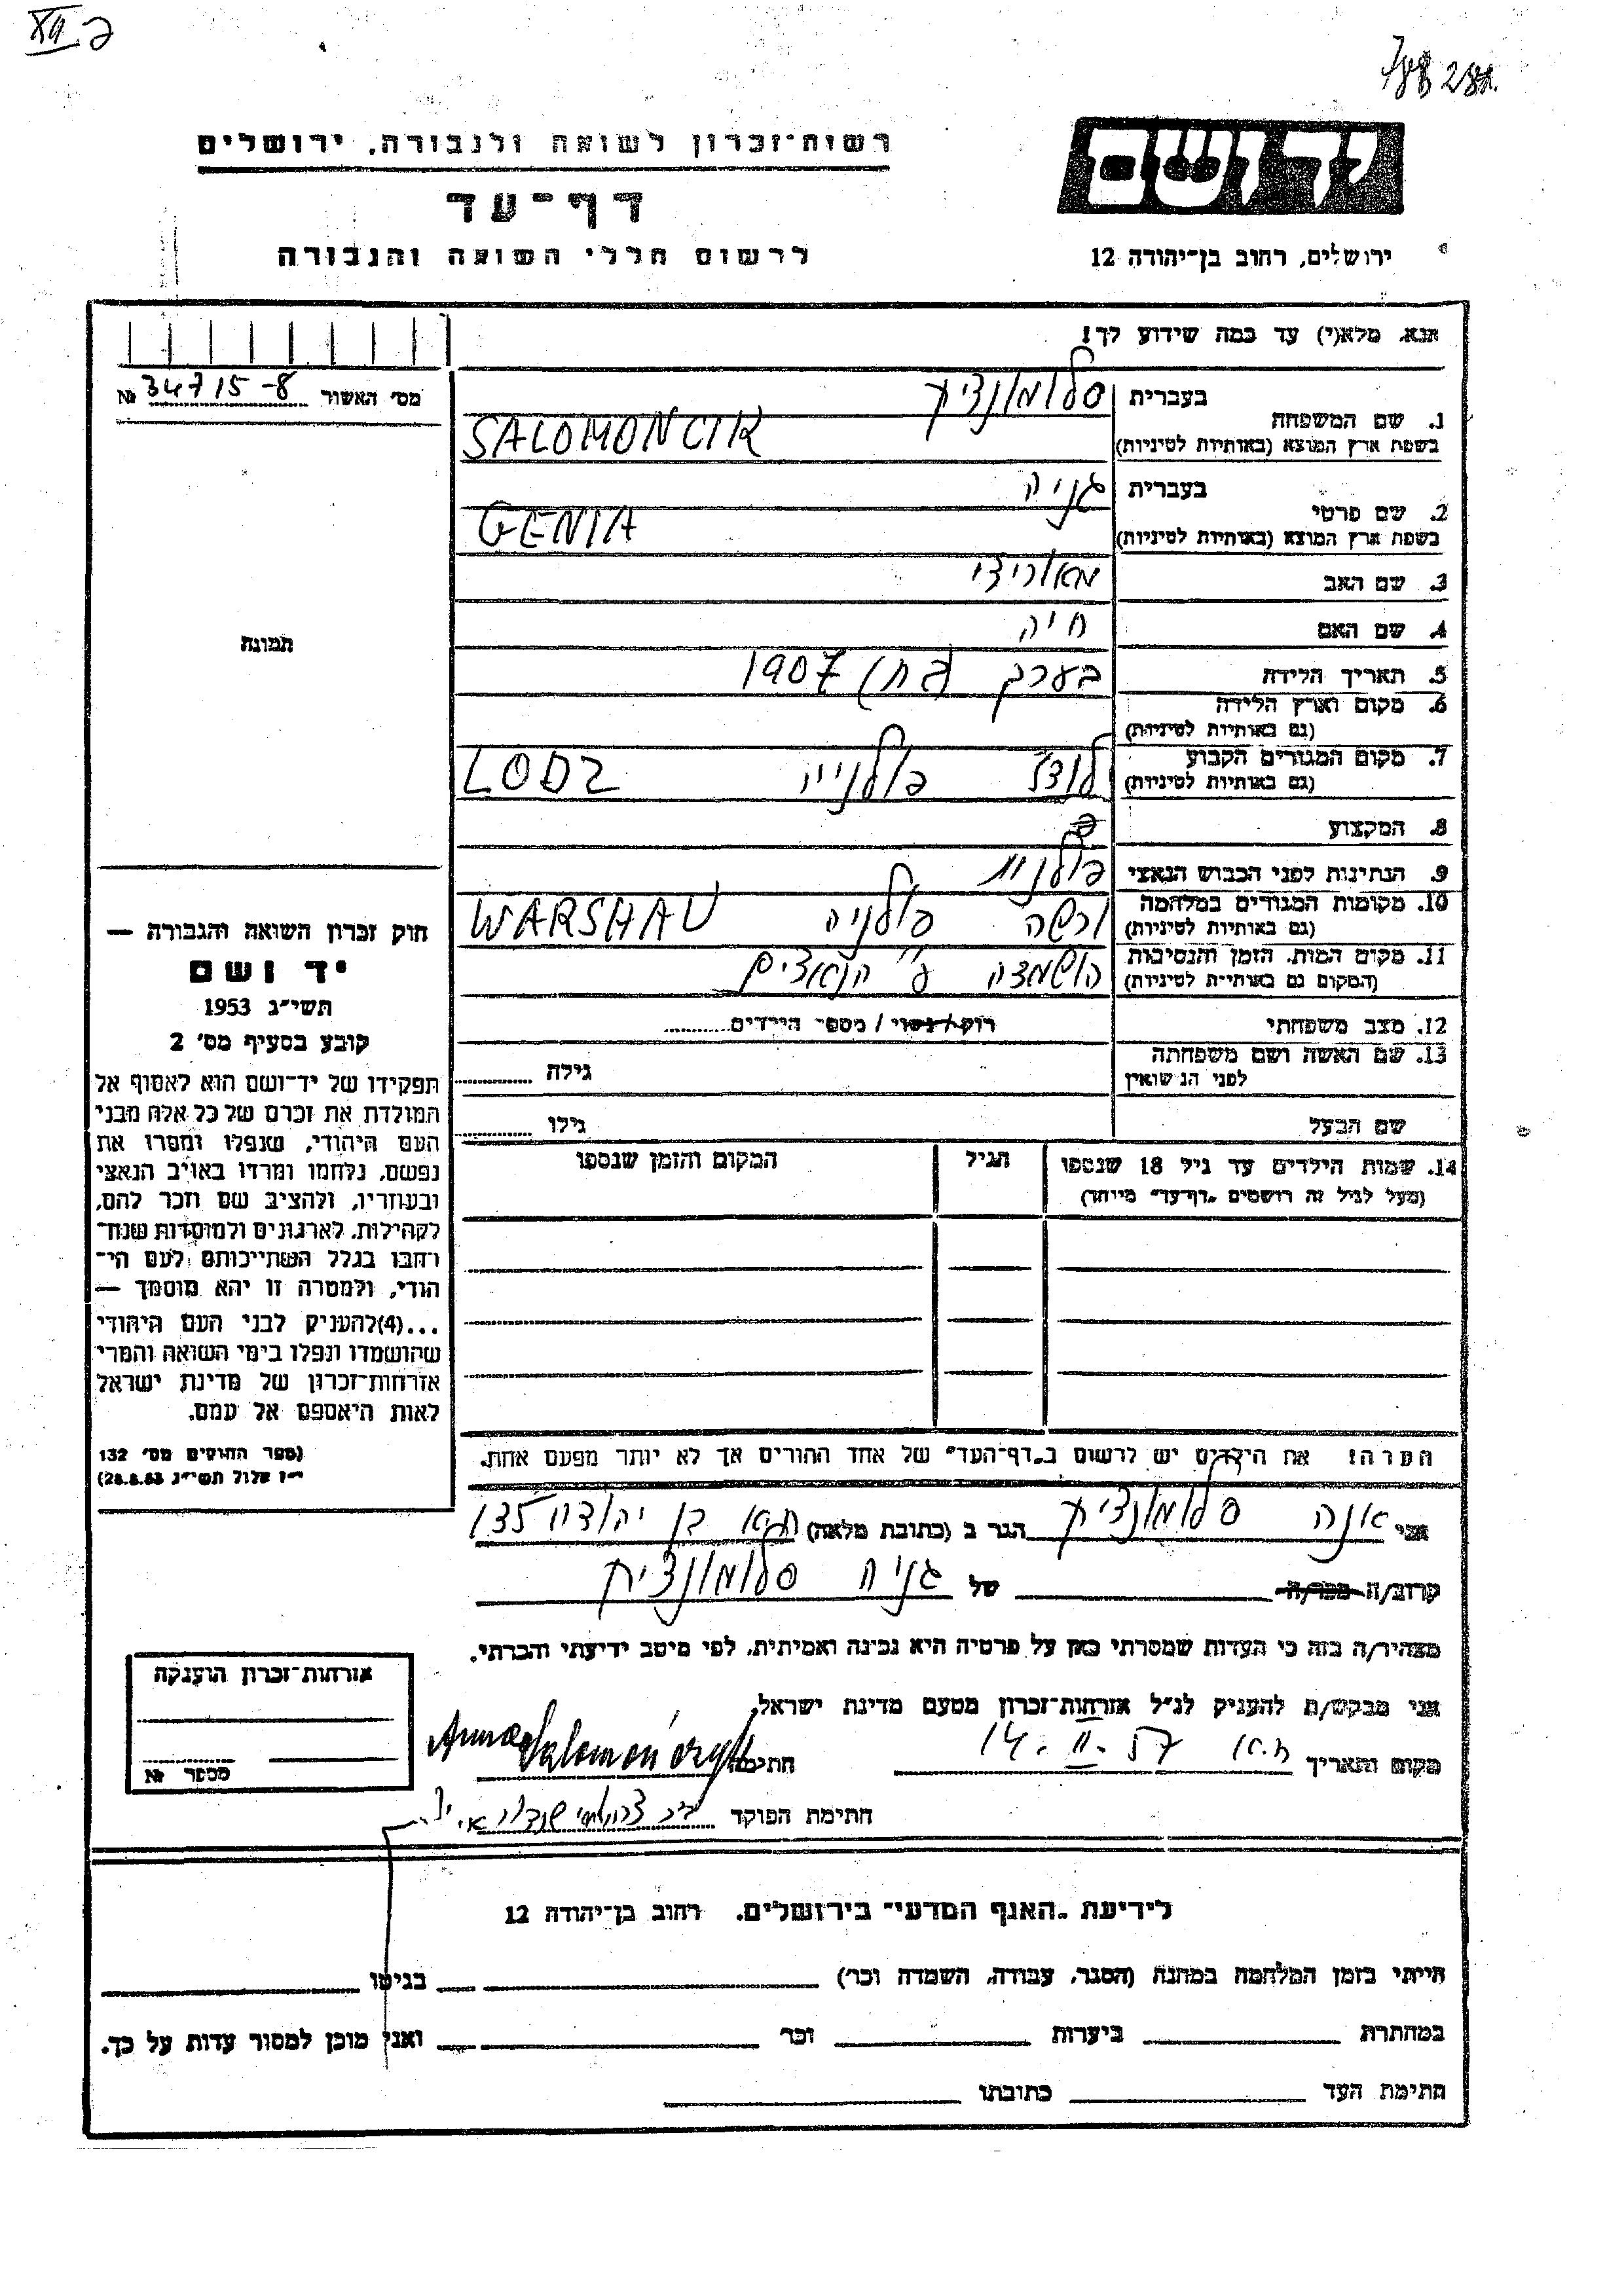 XII ב
רשות־זכרון לשואה ולגבורה, ירושלים
יד ושם
דף־עד
לרשום חללי השואה והגבורה
ירושלים, רחוב בן־יהודה 12
אנא, מלא(י) עד כמה שידוע לך!
מס׳ האשור 34715-8 №
1. שם המשפחה בעברית סלומונציק
בשפת ארץ המוצא (באותיות לטיניות) SALOMONCIK
2. שם פרטי בעברית גניה
בשפת ארץ המוצא (באותיות לטיניות) GENIA
3. שם האב מאוריצי
4. שם האם חיה
5. תאריך הלידה בערך 1907
6. מקום וארץ הלידה
(גם באותיות לטיניות)
7. מקום המגורים הקבוע לודז פולנייה LODZ
(גם באותיות לטיניות)
8. המקצוע
9. הנתינות לפני הכבוש הנאצי פולנית
10. מקומות המגורים במלחמה ורשה פולניה WARSHAU
(גם באותיות לטיניות)
11. מקום המות, הזמן והנסיבות הושמדה ע״י הנאצים
(המקום גם באותיות לטיניות)
12. מצב משפחתי רוק/נשוי/מספר הילדים
13. שם האשה ושם משפחתה
לפני הנישואין גילה
שם הבעל גילו
14. שמות הילדים עד גיל 18 שנספו הגיל המקום והזמן שנספו
(מעל לגיל זה רושמים „דף־עד״ מיוחד)
תמונה
חוק זכרון השואה והגבורה —
יד ושם
תשי״ג 1953
קובע בסעיף מס׳ 2
תפקידו של יד־ושם הוא לאסוף אל
המולדת את זכרם של כל אלה מבני
העם היהודי, שנפלו ומסרו את
נפשם, נלחמו ומרדו באויב הנאצי
ובעוזריו, ולהציב שם וזכר להם,
לקהילות, לארגונים ולמוסדות שנח־
רחבו בגלל השתייכותם לעם הי־
הודי, ולמטרה זו יהא מוסמך —
...(4)להעניק לבני העם היהודי
שהושמדו ונפלו בימי השואה והמרי
אזרחות־זכרון של מדינת ישראל
לאות היאספם אל עמם.
(ספר החוקים מס׳ 132
י״ז אלול תשי״ג 28.8.53)
הערה! את הילדים יש לרשום ב„דף־העד״ של אחד ההורים אך לא יותר מפעם אחת.
אני אנה סלומונציק הגר ב (כתובת מלאה) ת״א בן יהודה 135
קרוב/ה מכר/ה של גניה סלומונציק
מצהיר/ה בזה כי העדות שמסרתי כאן על פרטיה היא נכונה ואמיתית, לפי מיטב ידיעתי והכרתי.
אני מבקש/ת להעניק לנ״ל אזרחות־זכרון מטעם מדינת ישראל.
מקום ותאריך ת.א. 14.II.57 חתימה Anna Salomończyk
חתימת הפוקד
אזרחות־זכרון הוענקה
מספר №
לידיעת „האגף המדעי״ בירושלים, רחוב בן־יהודה 12
הייתי בזמן המלחמה במחנה (הסגר, עבודה, השמדה וכו׳) בגיטו
במחתרת ביערות וכו׳ ואני מוכן למסור עדות על כך.
חתימת העד כתובתו